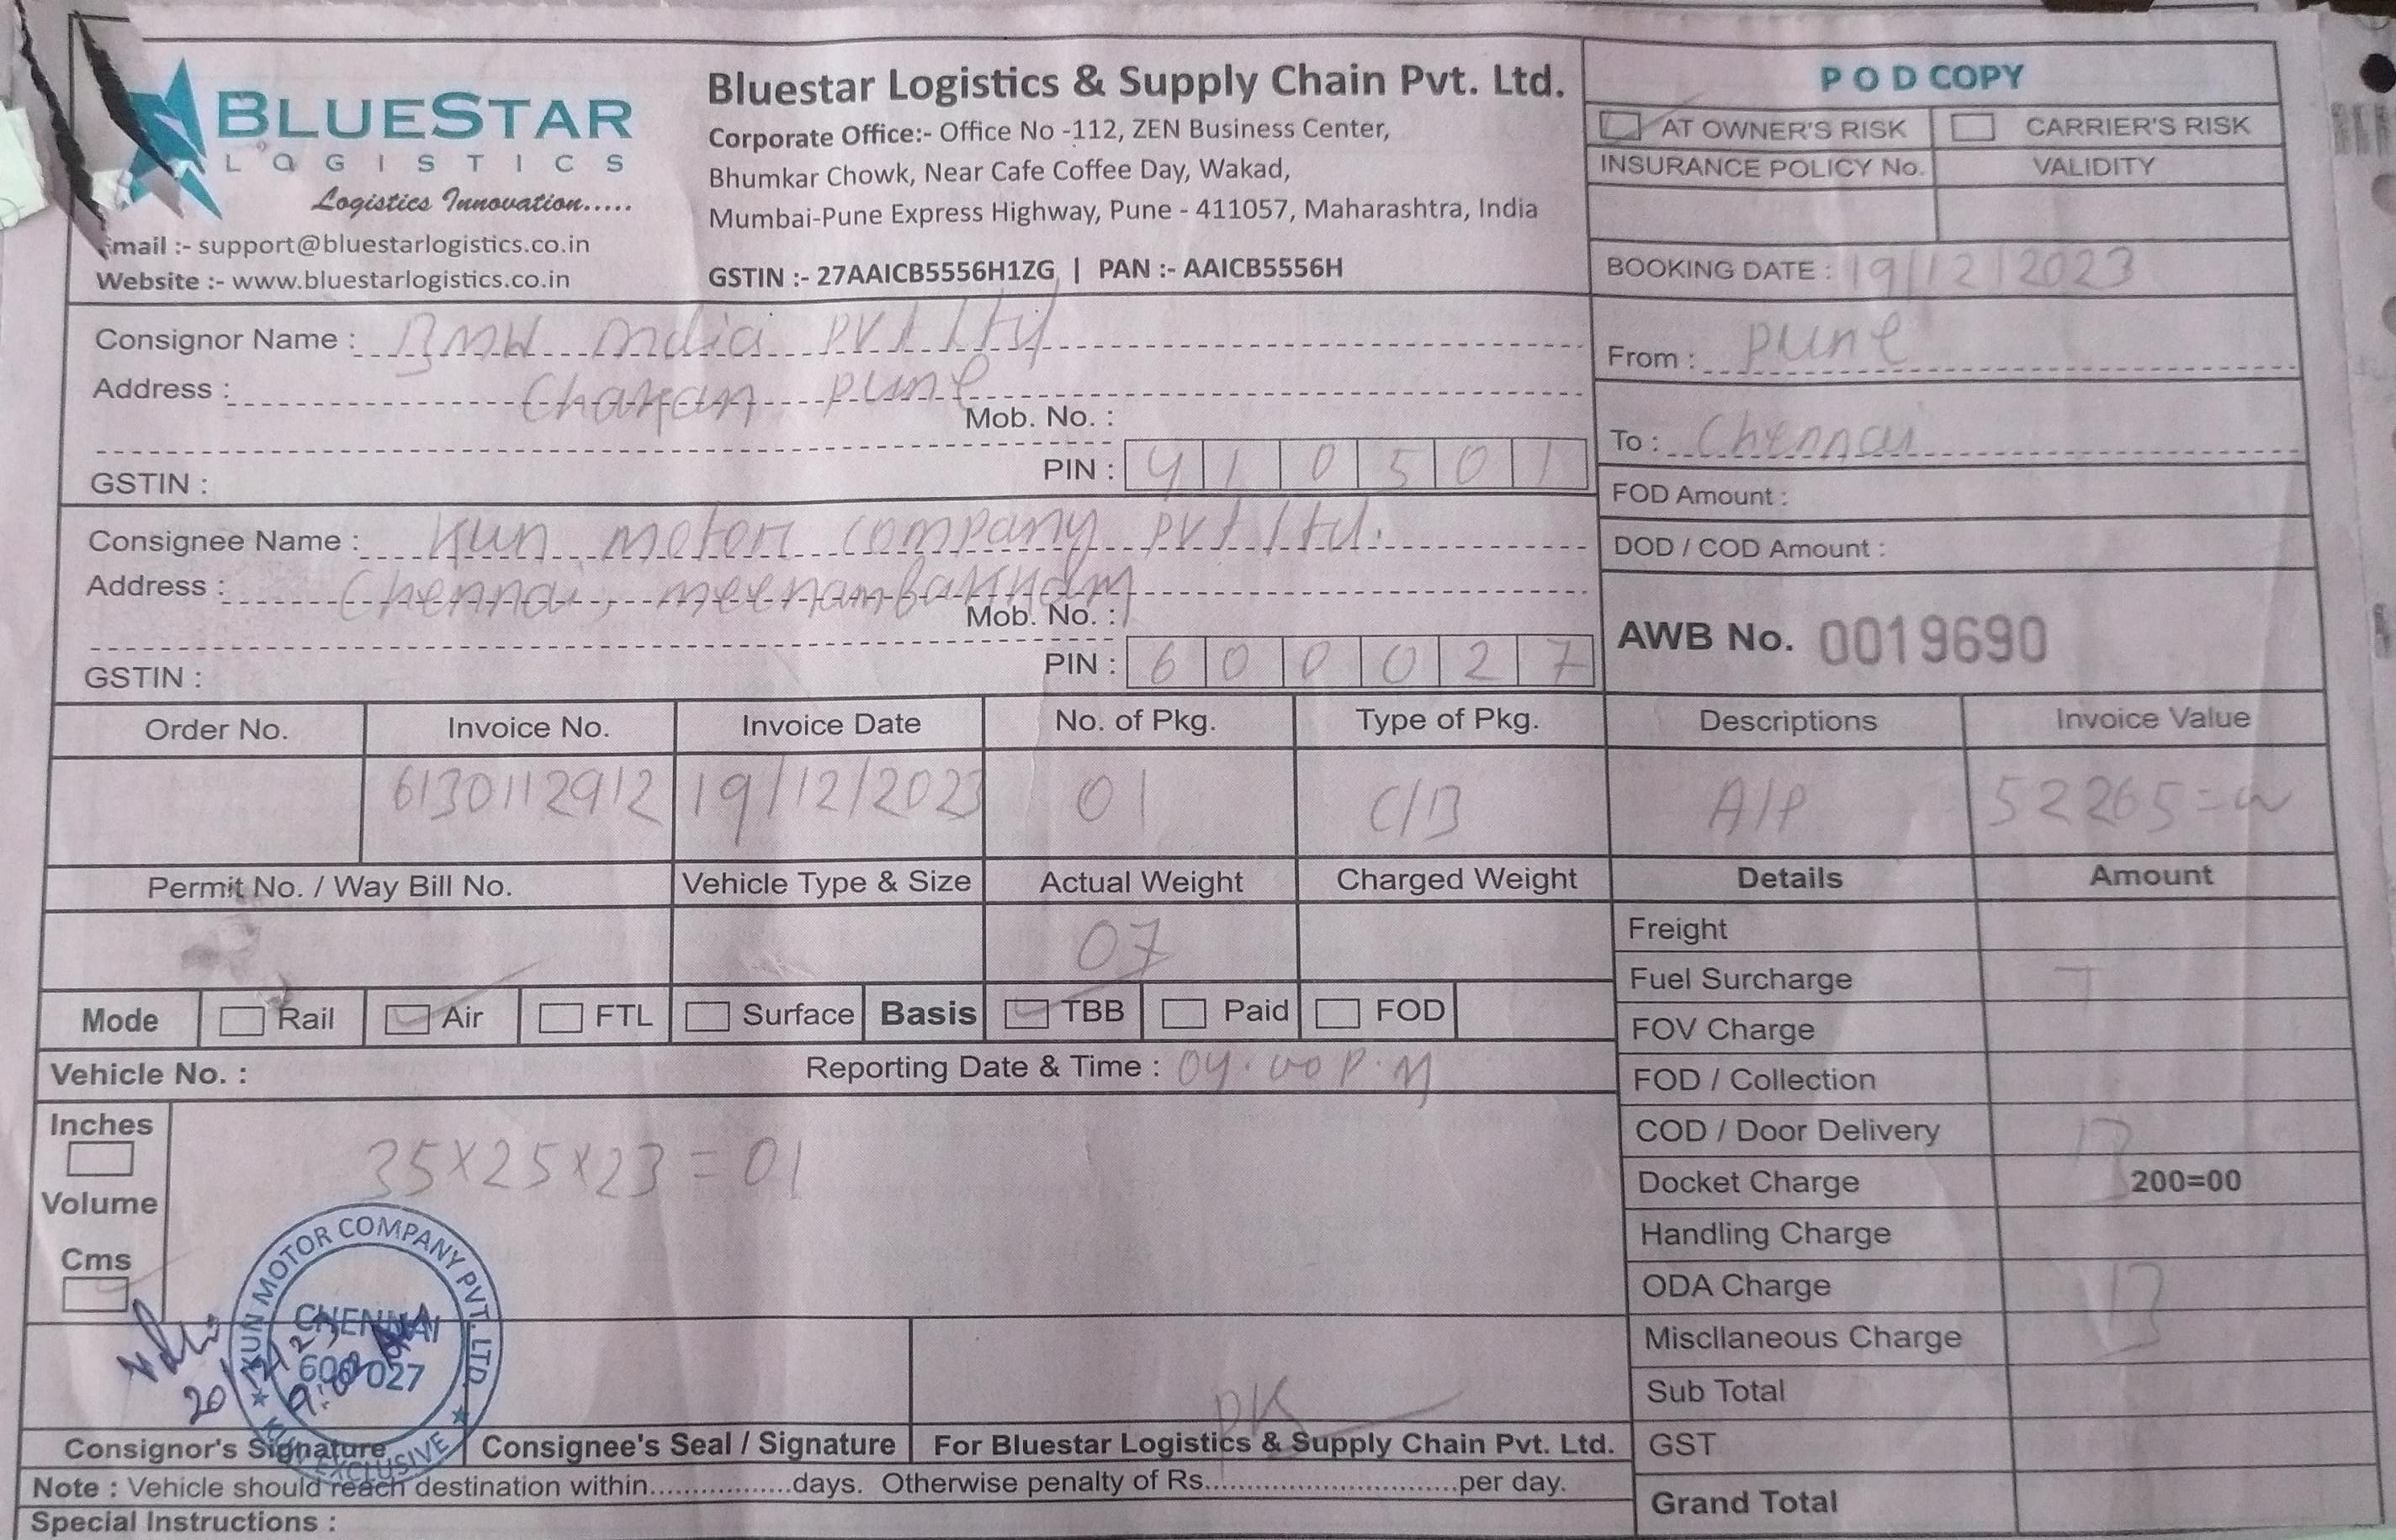 BLUESTAR
LOGISTICS
Logistics Innovation.....
Email :- support@bluestarlogistics.co.in
Website :- www.bluestarlogistics.co.in
Bluestar Logistics & Supply Chain Pvt. Ltd.
Corporate Office:- Office No -112, ZEN Business Center,
Bhumkar Chowk, Near Cafe Coffee Day, Wakad,
Mumbai-Pune Express Highway, Pune - 411057, Maharashtra, India
GSTIN :- 27AAICB5556H1ZG | PAN :- AAICB5556H
POD COPY
AT OWNER'S RISK CARRIER'S RISK
INSURANCE POLICY No. VALIDITY
BOOKING DATE : 19/12/2023
From : pune
To : Chennai
FOD Amount :
DOD / COD Amount :
AWB No. 0019690
Consignor Name : BMW india pvt lty
Address : Chakan pune
Mob. No. :
GSTIN : PIN : 410501
Consignee Name : Kun motor company pvt ltd.
Address : Chennai, meenambakkam
Mob. No. :
GSTIN : PIN : 600027
Order No. Invoice No. Invoice Date No. of Pkg. Type of Pkg. Descriptions Invoice Value
6130112912 19/12/2023 01 C/B A/P 52265=
Permit No. / Way Bill No. Vehicle Type & Size Actual Weight Charged Weight Details Amount
07
Freight
Fuel Surcharge
FOV Charge
FOD / Collection
COD / Door Delivery
Docket Charge 200=00
Handling Charge
ODA Charge
Miscllaneous Charge
Sub Total
GST
Grand Total
Mode Rail Air FTL Surface Basis TBB Paid FOD
Vehicle No. : Reporting Date & Time : 04.00 P.M
Inches
Volume
Cms
35x25x23=01
KUN MOTOR COMPANY PVT. LTD.
CHENNAI
600 027
KUN EXCLUSIVE
PK
Consignor's Signature Consignee's Seal / Signature For Bluestar Logistics & Supply Chain Pvt. Ltd.
Note : Vehicle should reach destination within................days. Otherwise penalty of Rs.............................per day.
Special Instructions :